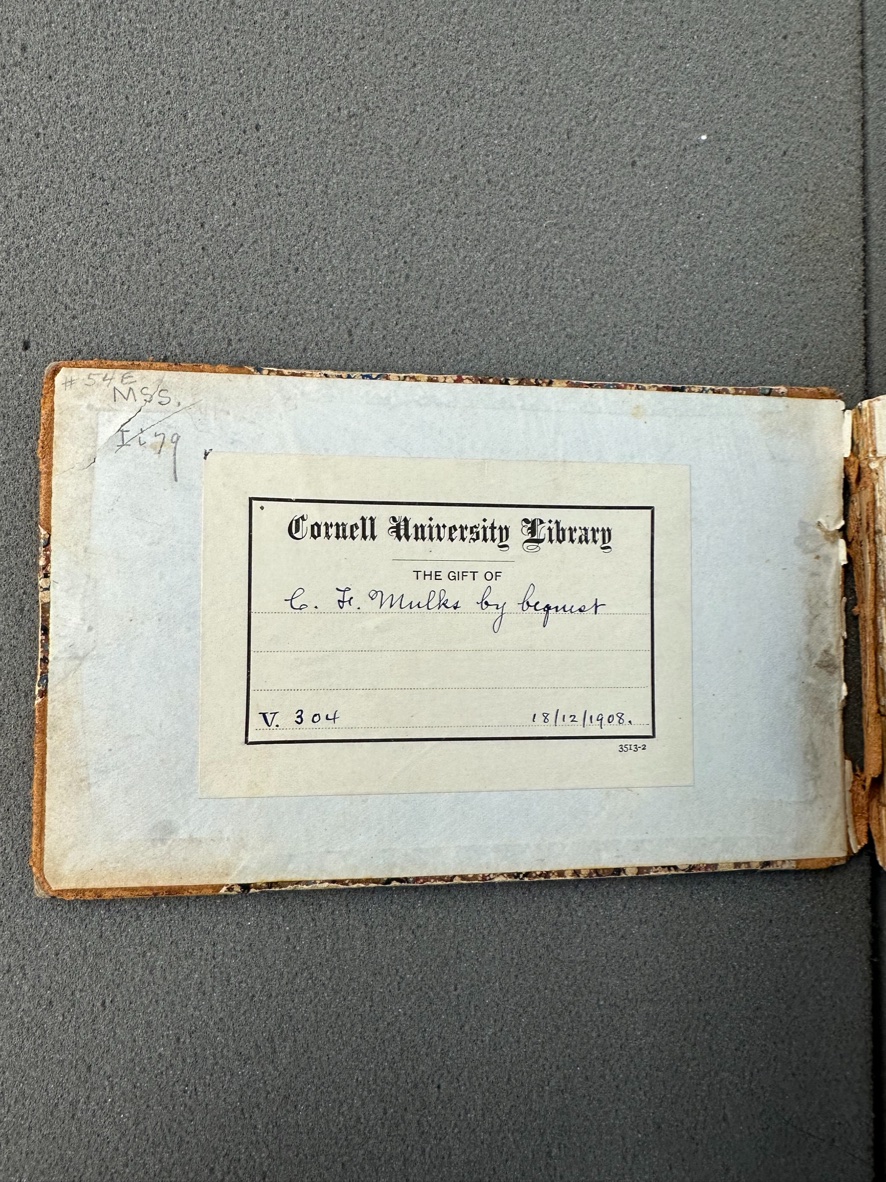 # 54E
MSS.
Ii 79
Cornell University Library
THE GIFT OF
C. F. Mulks by bequest
V. 304 18/12/1908.
3513-2